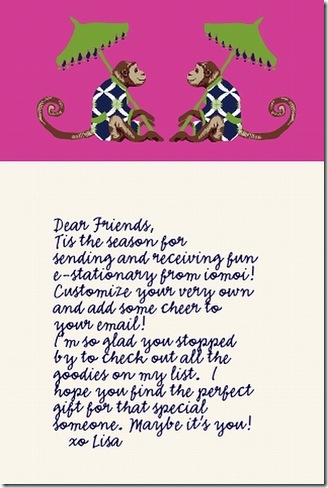 Dear Friends,
Tis the season for
sending and receiving fun
e-stationary from iomoi!
Customize your very own
and add some cheer to
your email!
I'm so glad you stopped
by to check out all the
goodies on my list.  I
hope you find the perfect
gift for that special
someone. Maybe it's you!
xo Lisa